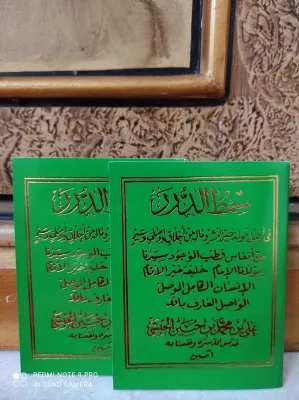 سمط الدرر
في أخبار مولد خير البشر وما له من أخلاق وأوصاف وسير
من أنفاس قطب الوجود سيدنا
ومولانا الإمام خليفة خير الأنام
الإنسان الكامل الموصل
الواصل العارف بالله
علي بن محمد بن حسين الحبشي
قدس الله سره ونفعنا به
آمين
REDMI NOTE 9 PRO
AI QUAD CAMERA